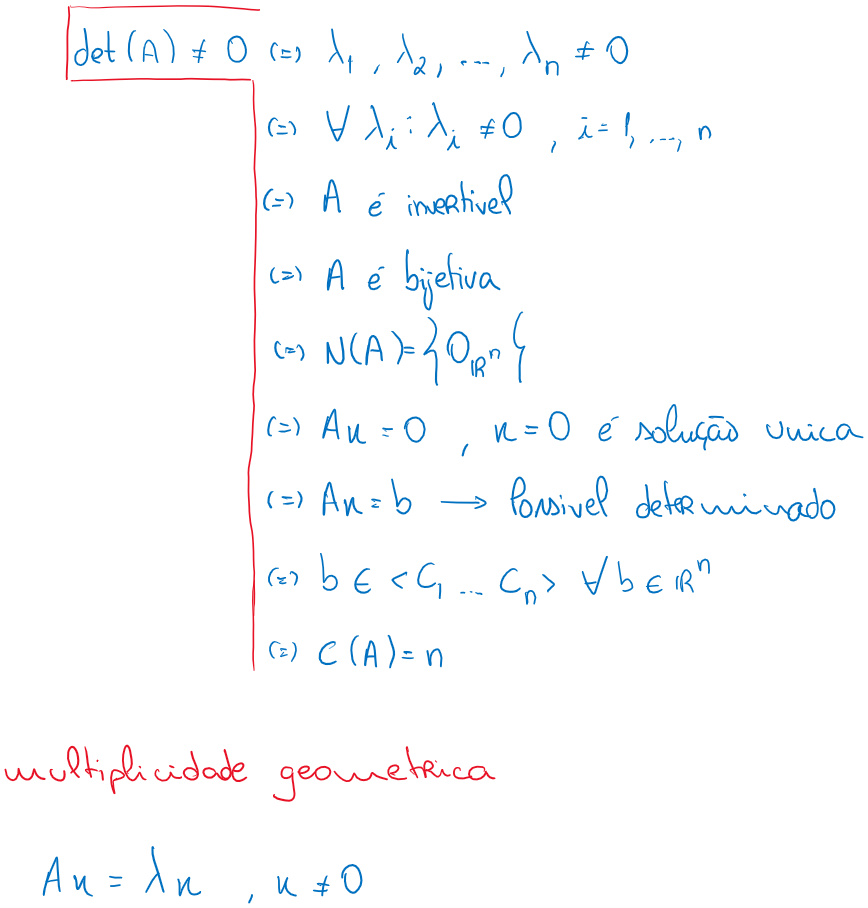 det(A) ≠ 0 (=) λ₁, λ₂, ..., λₙ ≠ 0
(=) ∀ λᵢ : λᵢ ≠ 0 , i = 1, ..., n
(=) A é invertivel
(=) A é bijetiva
(=) N(A) = {0_ℝⁿ}
(=) Ax = 0 , x = 0 é solução unica
(=) Ax = b → Possivel determinado
(=) b ∈ <C₁ ... Cₙ> ∀ b ∈ ℝⁿ
(=) C(A) = n
multiplicidade geometrica
Ax = λx , x ≠ 0